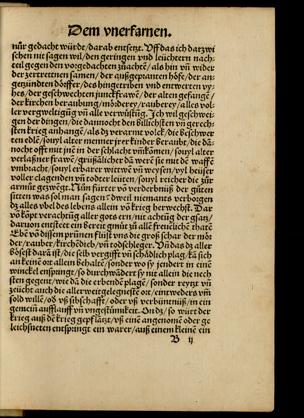 Dem vnerfarnen.
nůr gedacht würde / darab entsetzt. Vff das ich darzwi
schen nit sagen wil / den geringen vnd leüchtern nach-
teil gegen den vorgedachten zůachtē / als hin vñ wider
der zertrettnen samen / der außgeprantē höfe / der an-
gezündten dörffer / des hingetriben vnd entwerten vy-
hes / der geschwechten junckfrawē / der alten gefangē /
der kirchen beraubung / mörderey / rauberey / alles vol-
ler vergweltigūg vñ alle verwüstūg. Ich wil geschwei-
gen der dingen / die dannocht den billichstē vñ gerech-
sten krieg anhangē / als dz verarmt volck / die beschwer
ten edlē / souyl alter menner jrer kinder beraubt / die dā-
nocht offt mit jnē in der schlacht vmkōmen / souyl alter
verlaßner frawē / grüßlicher dā werē sie mit dē waffē
vmbracht / souyl erbarer witwē vñ weysen / vyl heüser
voller clagenden vñ todter leüten / souyl reicher die zůr
armůt gezwēgt. Nun fürter vō verderbniß der gůten
sitten was sol man sagen? dweil niemants verborgen
dz alles übel des lebens allein vō krieg herwechst. Dar
vō kōpt verachtūg aller gots ern / nit achtūg der gsatz /
daruon entsteet ein bereit gmüt zů allē freüēlichē thatē
Ebē vō dissem prūnen flüßt vns die groß schar der mör
der / rauber / kirchēdieb / vñ todschleger. Vñ das dz aller
bösest darā ist / die selb vergifft vñ schädlich plag / kā sich
an keinē ort allein behaltē / sonder wo sy joch in eine
winckel enspringt / so durchwādert sy nit allein die nech
sten gegent / wie dā die erbendē plagē / sonder reytzt vñ
zeücht auch die allerweitgelegnestē ort / eintweders vm
sold willē / od vß sibschafft / oder vß verbüntnüß / in ein
gemein aufflauff vñ vngestümkeit. Vn dz / so würt der
krieg auß dē krieg gepflātzt / vß einē angenomē oder ge
leichsneten entspringt ein warer / auß einem kleinē ein
B ij